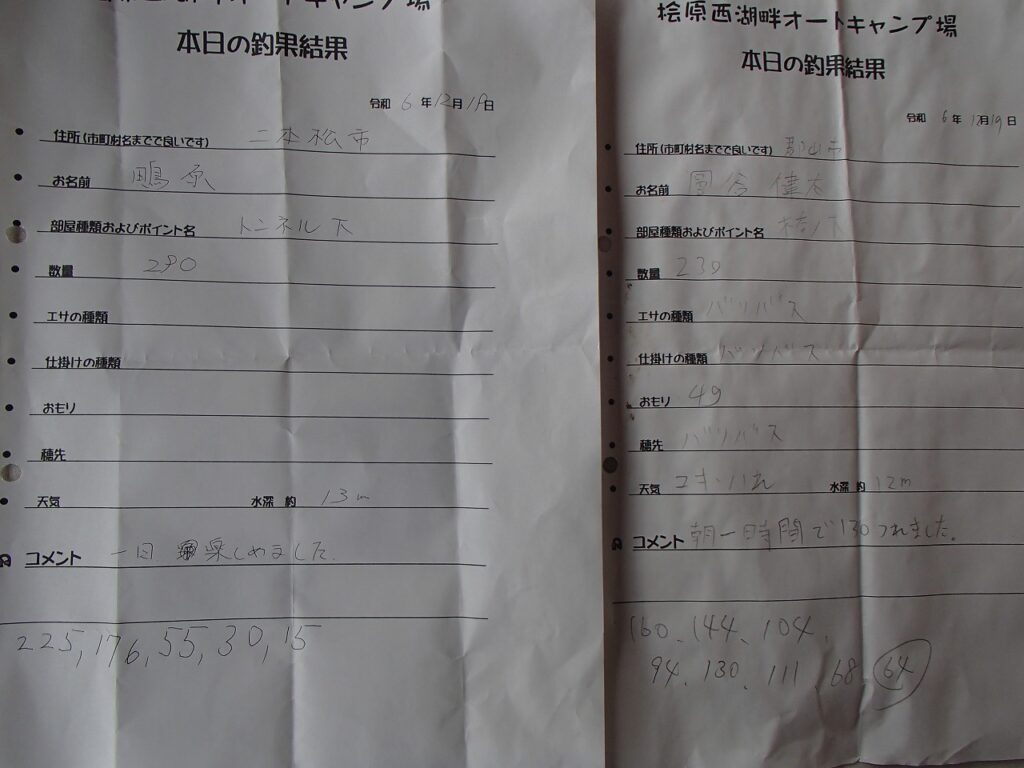 場
本日の釣果結果
令和 6 年 12月 19日
住所(市町材名までで良いです) 二本松市
お名前 鴫原
部屋種類およびポイント名 トンネル下
数量 290
エサの種類
仕掛けの種類
おもり
穂先
天気 水深 約 13m
コメント 一日 楽しめました.
225, 176, 55, 30, 15
桧原西湖畔オートキャンプ場
本日の釣果結果
令和 6 年 12月19日
住所(市町材名までで良いです) 郡山市
お名前 健太
部屋種類およびポイント名
数量 230
エサの種類 バリバス
仕掛けの種類 バリバス
おもり 4g
穂先 バリバス
天気 ユキ・ハれ 水深 約 12m
コメント 朝一時間で130つれました。
160、144、104、
94、130、111、68、64